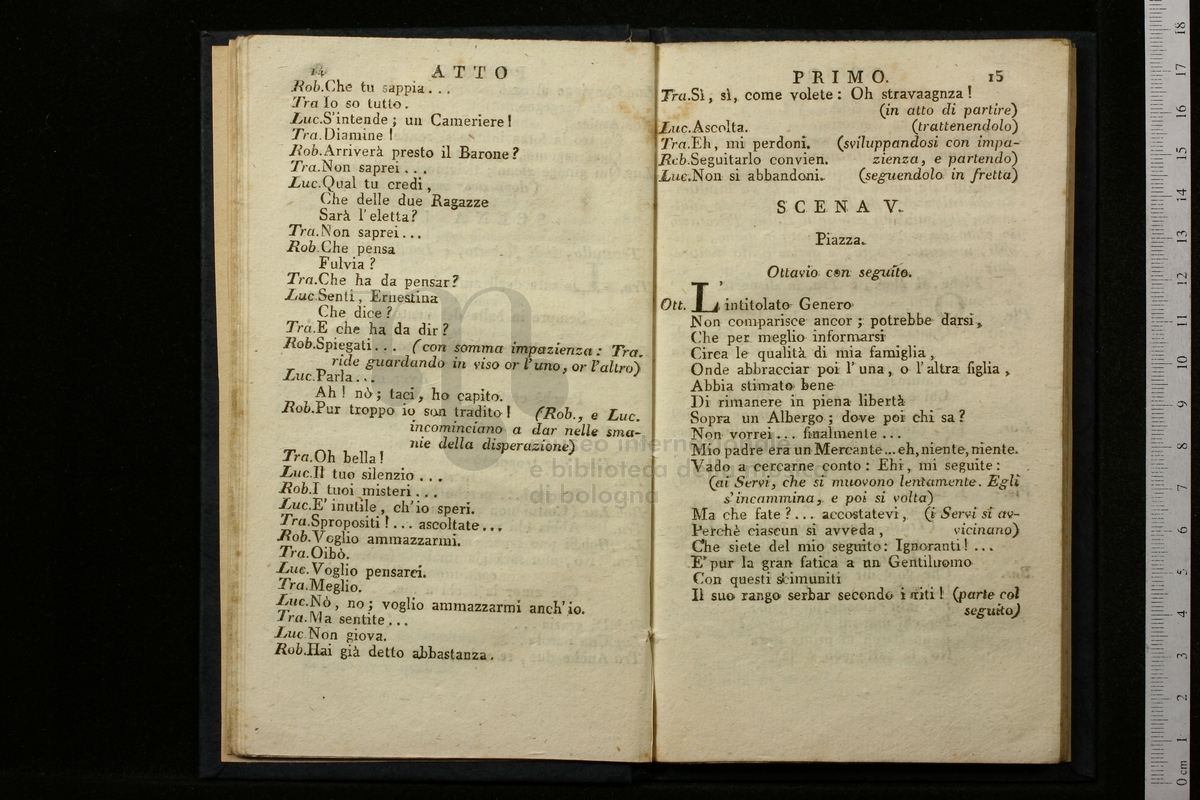 14 ATTO
Rob. Che tu sappia...
Tra Io so tutto.
Luc. S'intende; un Cameriere!
Tra. Diamine!
Rob. Arriverà presto il Barone?
Tra. Non saprei...
Luc. Qual tu credi,
Che delle due Ragazze
Sarà l'eletta?
Tra. Non saprei...
Rob. Che pensa
Fulvia?
Tra. Che ha da pensar?
Luc. Senti, Ernestina
Che dice?
Tra. E che ha da dir?
Rob. Spiegati... (con somma impazienza: Tra.
ride guardando in viso or l'uno, or l'altro)
Luc. Parla...
Ah! nò; taci, ho capito.
Rob. Pur troppo io son tradito! (Rob., e Luc.
incominciano a dar nelle sma-
nie della disperazione)
Tra. Oh bella!
Luc. Il tuo silenzio...
Rob. I tuoi misteri...
Luc. E' inutile, ch'io speri.
Tra. Spropositi!... ascoltate...
Rob. Voglio ammazzarmi.
Tra. Oibò.
Luc. Voglio pensarci.
Tra. Meglio.
Luc. Nò, no; voglio ammazzarmi anch'io.
Tra. Ma sentite...
Luc Non giova.
Rob. Hai già detto abbastanza.
PRIMO. 15
Tra. Sì, sì, come volete: Oh stravaagnza!
(in atto di partire)
Luc. Ascolta. (trattenendolo)
Tra. Eh, mi perdoni. (sviluppandosi con impa-
Rob. Seguitarlo convien. zienza, e partendo)
Luc. Non si abbandoni. (seguendolo in fretta)
SCENA V.
Piazza.
Ottavio con seguito.
Ott. L'intitolato Genero
Non comparisce ancor; potrebbe darsi,
Che per meglio informarsi
Circa le qualità di mia famiglia,
Onde abbracciar poi l'una, o l'altra figlia,
Abbia stimato bene
Di rimanere in piena libertà
Sopra un Albergo; dove poi chi sa?
Non vorrei... finalmente...
Mio padre era un Mercante... eh, niente, niente.
Vado a cercarne conto: Ehi, mi seguite:
(ai Servi, che si muovono lentamente. Egli
s'incammina, e poi si volta)
Ma che fate?... accostatevi, (i Servi si av-
Perchè ciascun si avveda, vicinano)
Che siete del mio seguito: Ignoranti!...
E' pur la gran fatica a un Gentiluomo
Con questi scimuniti
Il suo rango serbar secondo i riti! (parte col
seguito)
museo internazionale
e biblioteca della musica
di bologna
0 cm 1 2 3 4 5 6 7 8 9 10 11 12 13 14 15 16 17 18